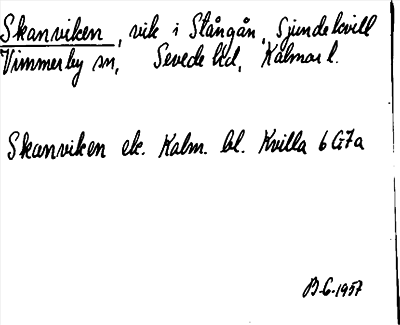 Skanviken, vik i Stångån, Sjundekvill
Vimmerby sn, Sevede hd, Kalmar l.
Skanviken ek. Kalm. bl. Kvilla 6 G7a
B.G. 1957